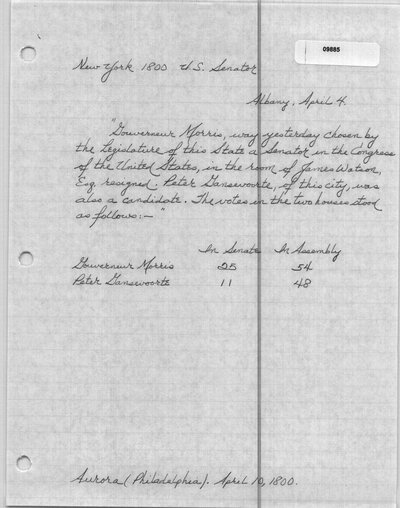 09885
New York 1800 U.S. Senator
Albany, April 4.
"Gouverneur Morris, way yesterday chosen by
the Legislature of this State a Senator in the Congress
of the United States, in the room of James Watson,
Esq resigned. Peter Gansevoorte, of this city, was
also a candidate. The votes in the two houses stood
as follows:—"
In Senate In Assembly
Gouverneur Morris 25 54
Peter Gansevoorte 11 48
Aurora (Philadelphia). April 10, 1800.